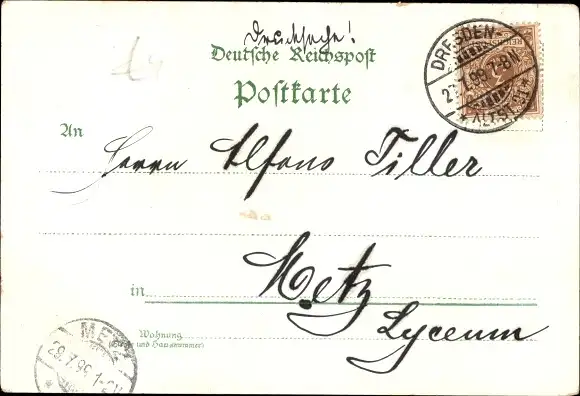 Drucksache!
Deutsche Reichspost
Postkarte
DRESDEN-
ALTST.
An
Herrn Alfons Tiller
in Metz
Lyceum
Wohnung
(Straße und Hausnummer)
METZ
29.7.99